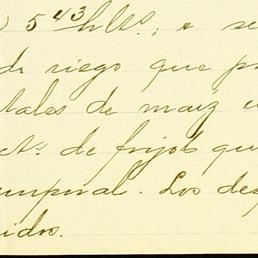 ) 543 hlts., a se
de riego que p
tales de maiz
ct. de frijol qu
emporal. Los des
idos.